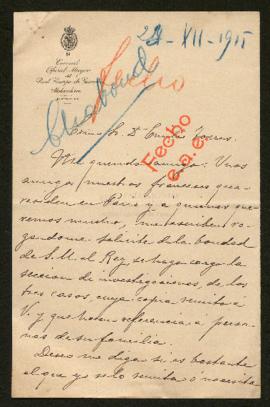 22-XII-1915
El Coronel
Oficial Mayor
del
Real Cuerpo de
Alabarderos
Fecho
Fecho
e.a.e.
Excmo Sr. D. Emilio
Mi querido amigo: Unos
amigos nuestros franceses que
residen en Paris y á quienes que
remos mucho, me escriben ro
gandome solicite de la bondad
de S. M. el Rey, se haga cargo la
sección de investigaciones, de los
tres casos, cuya copia remito á
V. y que hacen referencia á perso
nas de su familia.
Deseo me diga si es bastante
el que yo se lo remita ó necesita